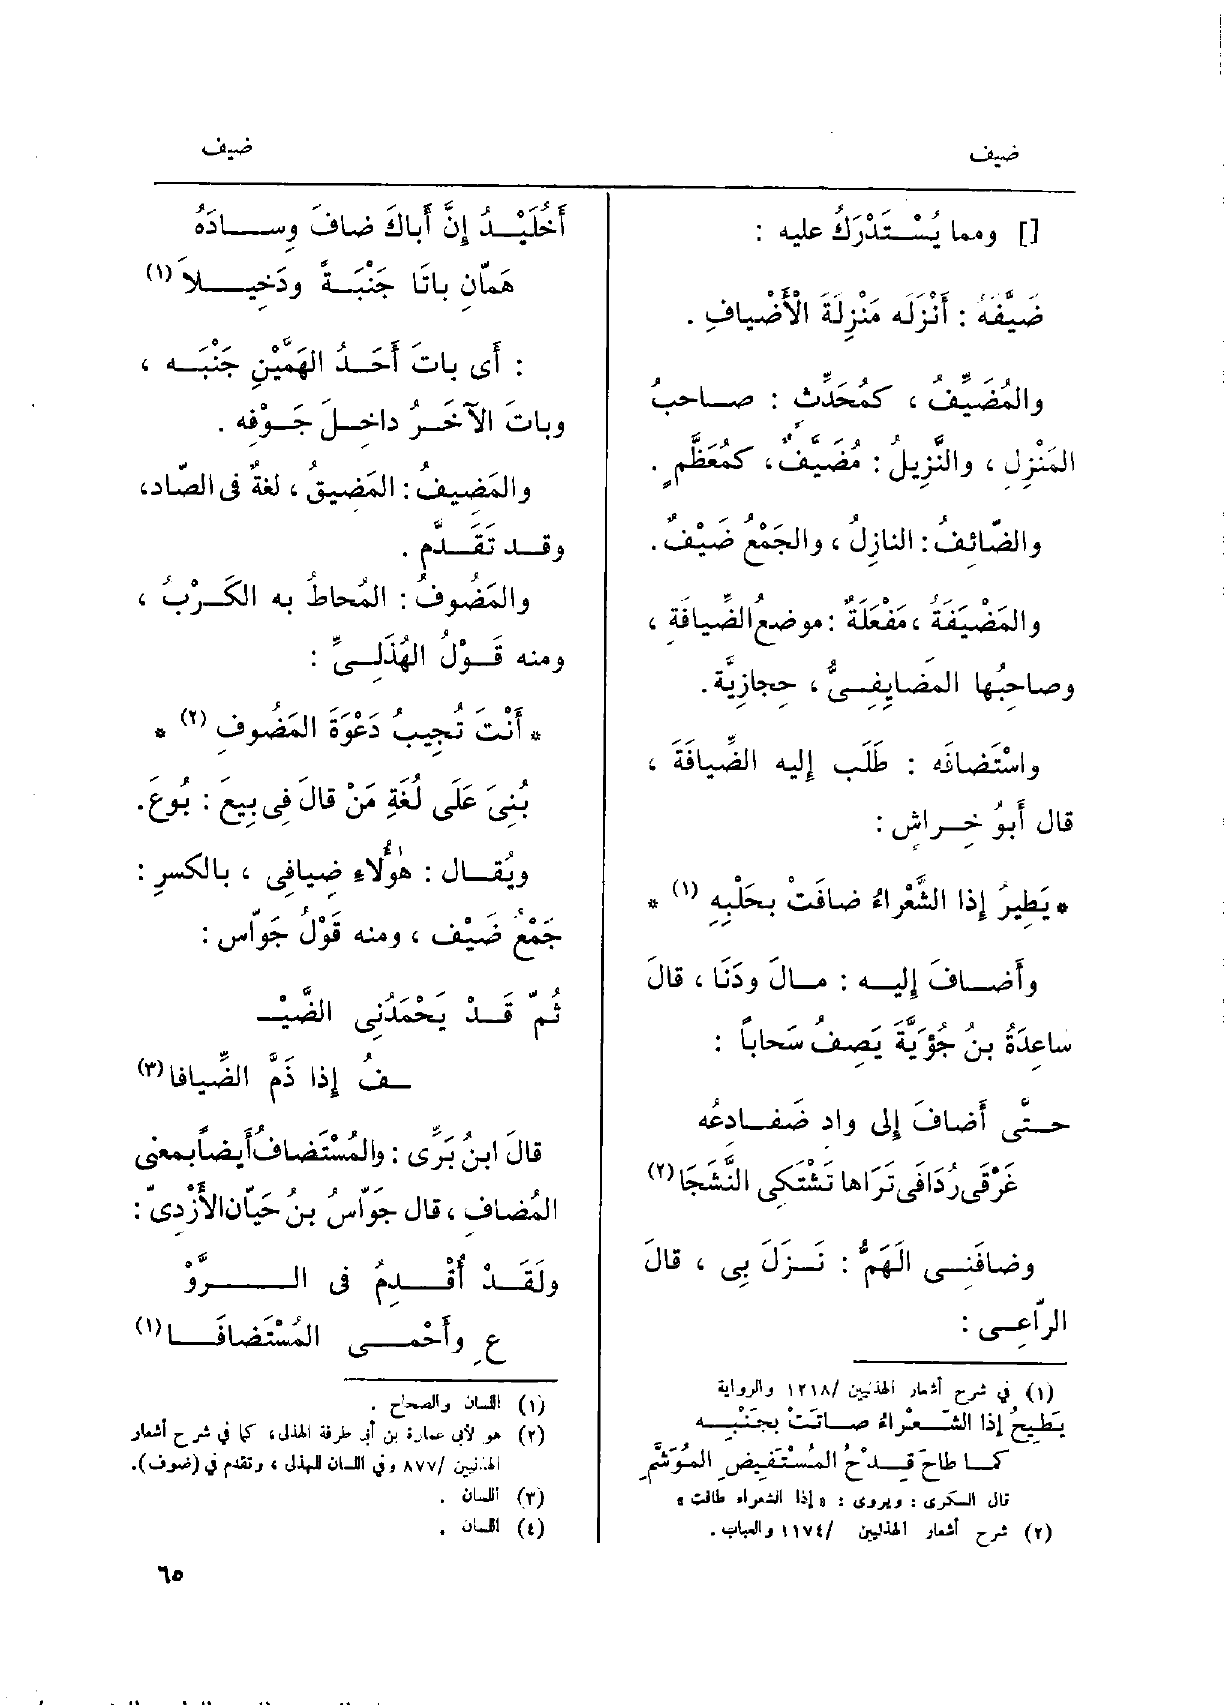 ضيف
ضيف
[] ومما يُسْتَدْرَكُ عليه :
ضَيَّفَهُ : أَنْزَلَه مَنْزِلَةَ الْأَضْيافِ .
والمُضَيِّفُ ، كمُحَدِّثٍ : صاحبُ
المَنْزِلِ ، والنَّزِيلُ : مُضَيَّفٌ ، كمُعَظَّمٍ .
والضّائِفُ : النازِلُ ، والجَمْعُ ضَيْفٌ .
والمَضْيَفَةُ ، مَفْعَلَةٌ : موضعُ الضِّيافَةِ ،
وصاحِبُها المَضايِفِىُّ ، حِجازِيَّة .
واسْتَضافَه : طَلَب إليه الضِّيافَةَ ،
قال أَبو خِراشٍ :
* يَطِيرُ إذا الشَّعْراءُ ضافَتْ بحَلْبِهِ (١) *
وأَضافَ إليه : مالَ ودَنَا ، قالَ
ساعِدَةُ بنُ جُؤَيَّةَ يَصِفُ سَحاباً :
حتَّى أَضافَ إلى واد ضَفادِعُه
غَرْقَى رُدَافَى تَرَاها تَشْتَكِى النَّشَجَا (٢)
وضافَنِى الَهَمُّ : نَزَلَ بِى ، قالَ
الرّاعِى :
(١) في شرح أشعار الهذليين /١٢١٨ والرواية
يَطِيحُ إذا الشَّعْراءُ صاتَتْ بجَنْبِه
كما طاحَ قِدْحُ المُسْتَفِيضِ المُوَشَّمِ
قال السكرى : ويروى : « إذا الشعراء طافت »
(٢) شرح أشعار الهذليين /١١٧٤ والعباب .
أَخُلَيْدُ إنَّ أَباكَ ضافَ وِسادَهُ
هَمّانِ باتَا جَنْبَةً ودَخِيلاَ (١)
: أى باتَ أَحَدُ الهَمَّيْنِ جَنْبَه ،
وباتَ الآخَرُ داخِلَ جَوْفِه .
والمَضِيفُ : المَضِيقُ ، لغةٌ فى الصّاد،
وقد تَقَدَّم .
والمَضُوفُ : المُحاطُ به الكَرْبُ ،
ومنه قَوْلُ الهُذَلِىِّ :
* أَنْتَ تُجِيبُ دَعْوَةَ المَضُوفِ (٢) *
بُنِىَ عَلَى لُغَةِ مَنْ قالَ فِى بِيعَ : بُوعَ .
ويُقال : هٰؤُلاءِ ضِيافِى ، بالكسرِ :
جَمْعُ ضَيْف ، ومنه قَوْلُ جَوّاس :
ثُمّ قَدْ يَحْمَدُنِى الضَّيْـ
ـفُ إذا ذَمَّ الضِّيافا (٣)
قالَ ابنُ بَرِّى : والمُسْتَضافُ أَيضاً بمعنى
المُضافِ ، قال جَوّاسُ بنُ حَيّان الأَزْدِىّ :
ولَقَدْ أُقْدِمُ فى الرَّوْ
عِ وأَحْمِى المُسْتَضافَا (١)
(١) اللسان والصحاح .
(٢) هو لأبى عمارة بن أبى طرفة الهذلى، كما في شرح أشعار
الهذليين /٨٧٧ وفي اللسان للهذلى ، وتقدم في (ضوف).
(٣) اللسان .
(٤) اللسان .
٦٥